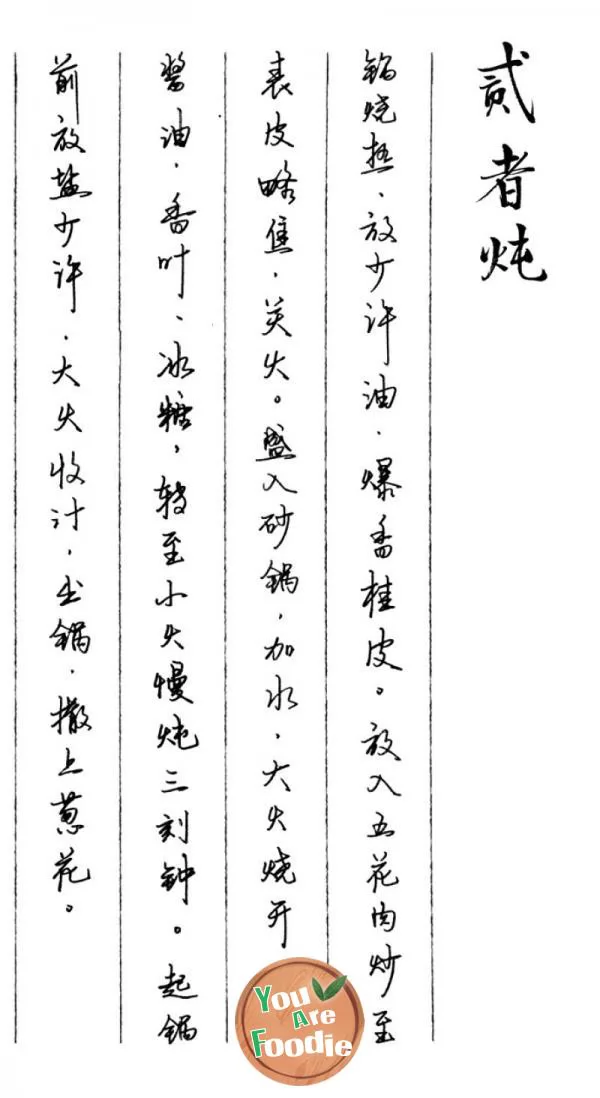 贰者炖
锅烧热、放少许油、爆香桂皮。放入五花肉炒至
表皮略焦，关火。盛入砂锅，加水、大火烧开
酱油、香叶、冰糖，转至小火慢炖三刻钟。起锅
前放盐少许、大火收汁，出锅、撒上葱花。
You
Are
Foodie